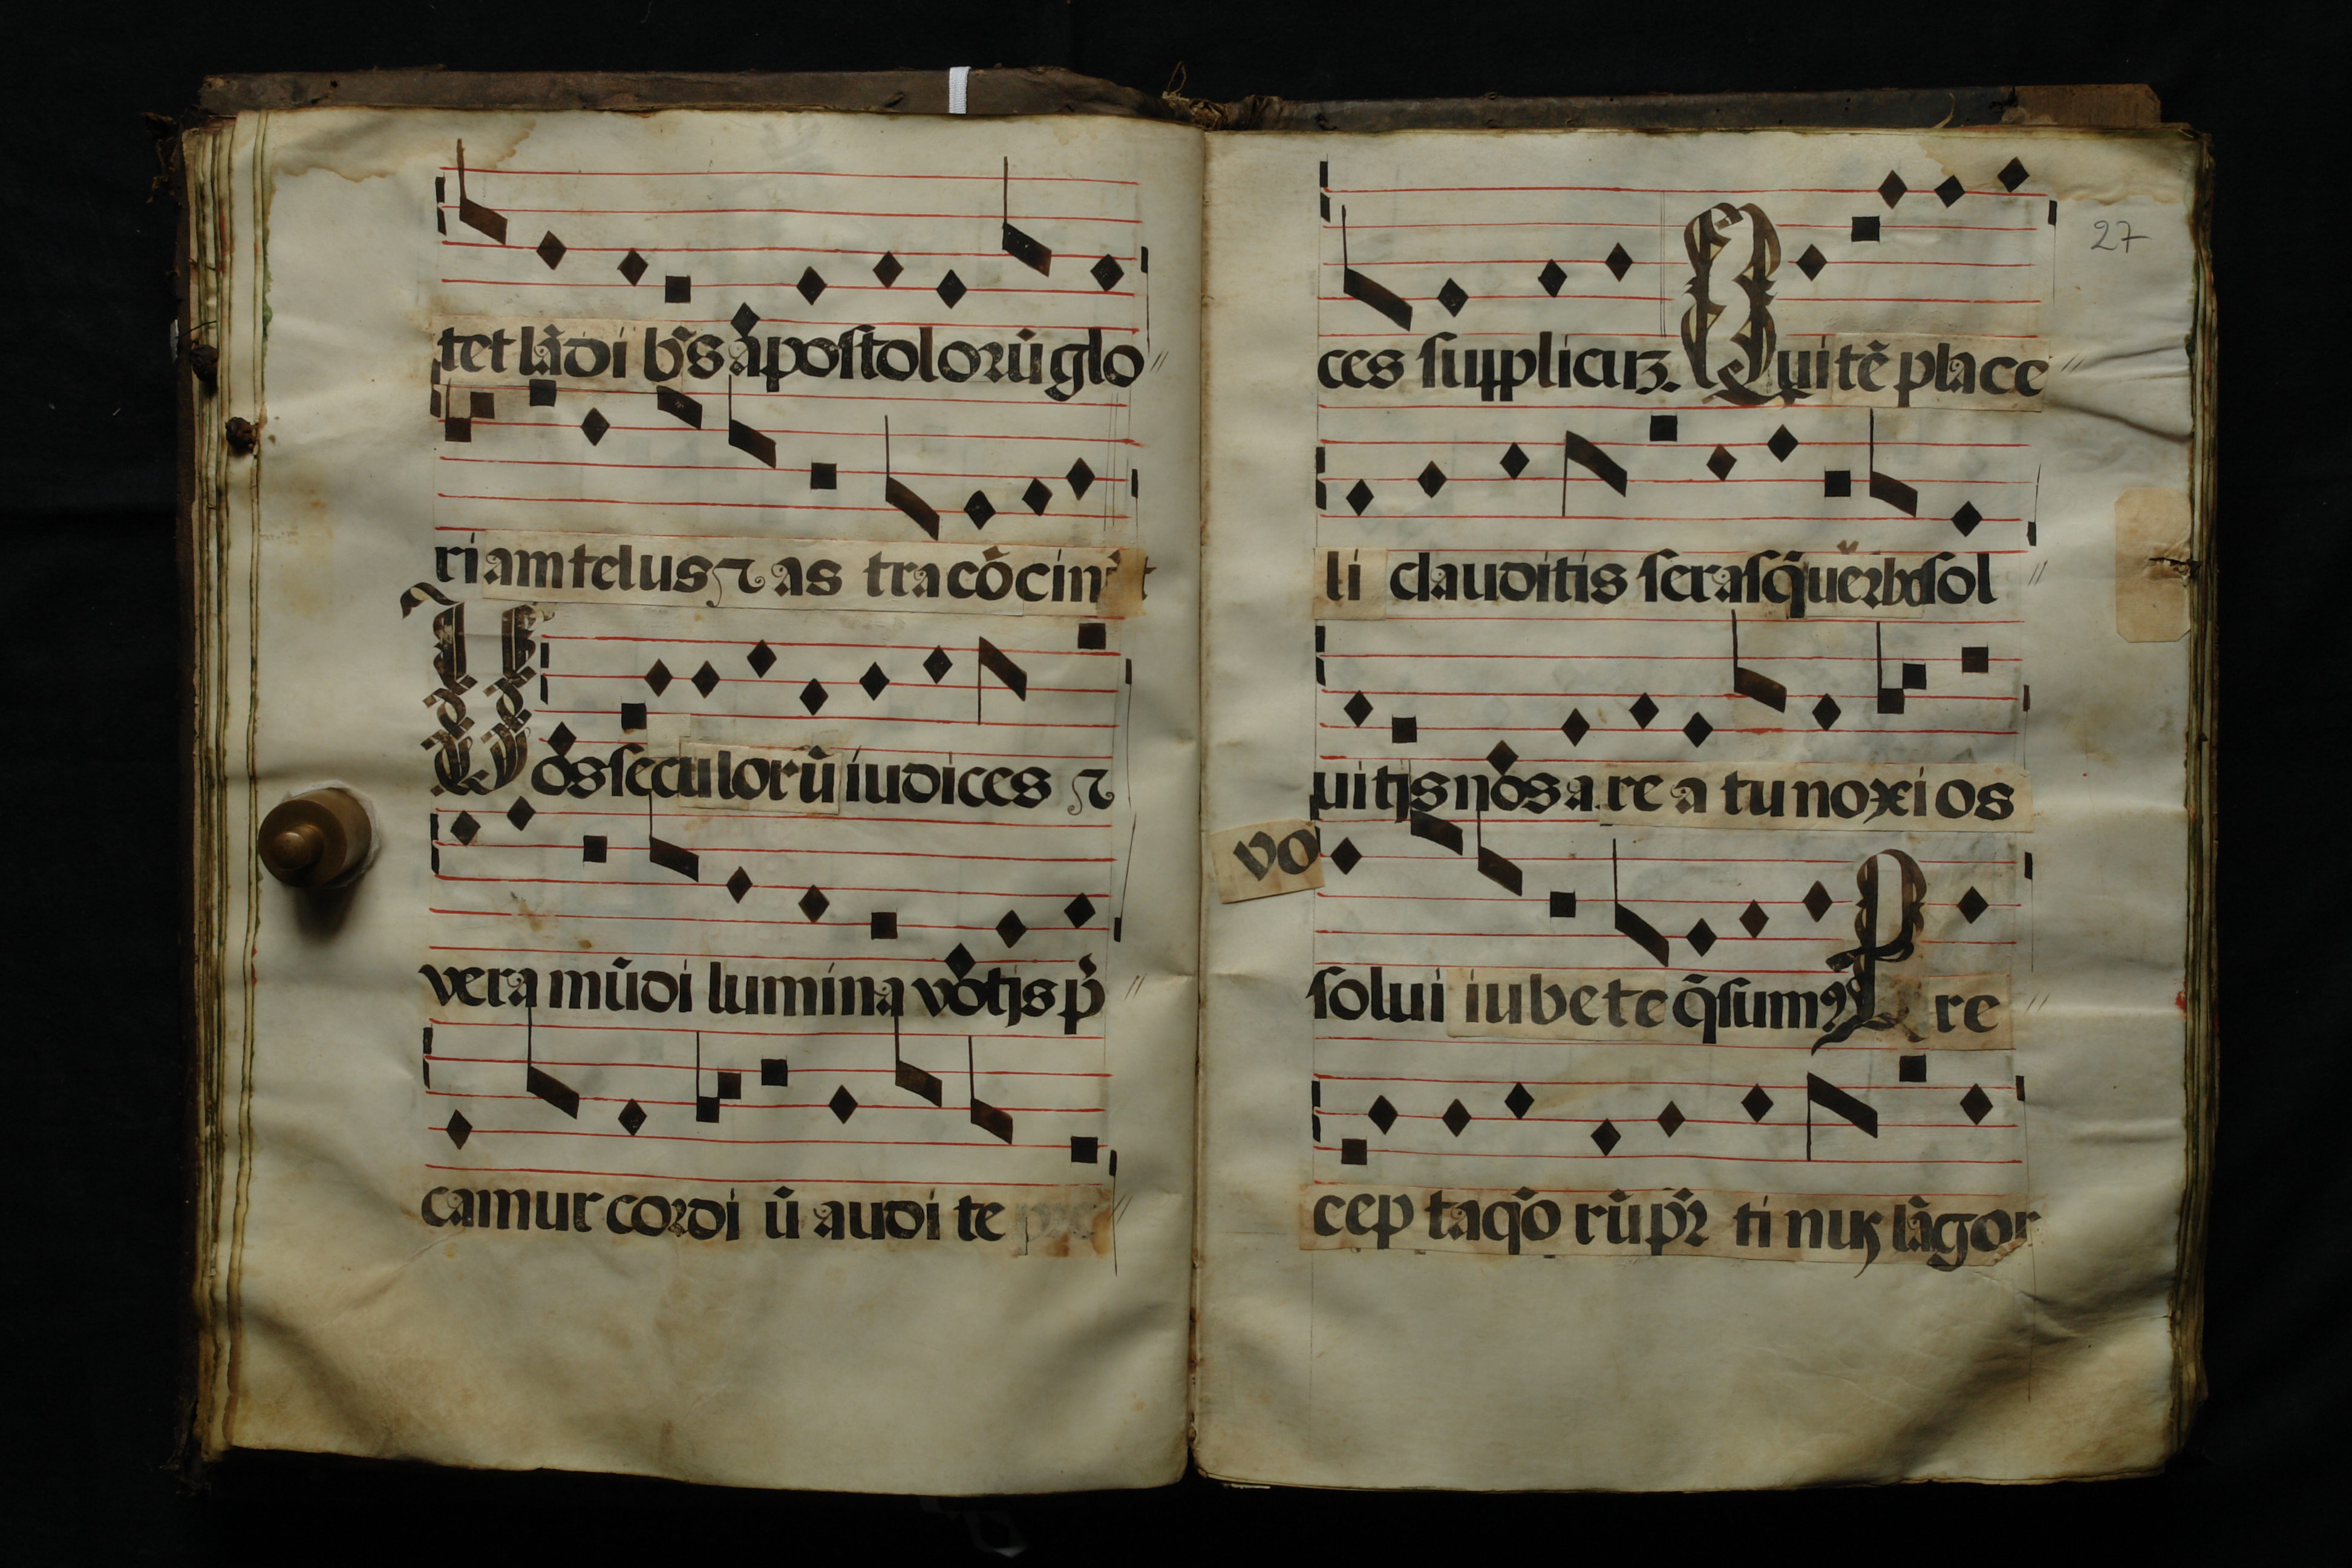 tet lādi b̄s apostolorū glo //
riam telus ⁊ as tra cō cinūt
Vos seculorū iudices ⁊
vera mūdi lumina votijs p̄ //
camur cordi ū audi te pre //
27
ces supplicuz. Qui tē place //
li clauditis serasq̄ verbo sol //
uitijs nos a re a tu noxi os
vo
solui iubete q̄sumꝰ Pre //
cep taq̄o rū pr̄ ti nus lāgor